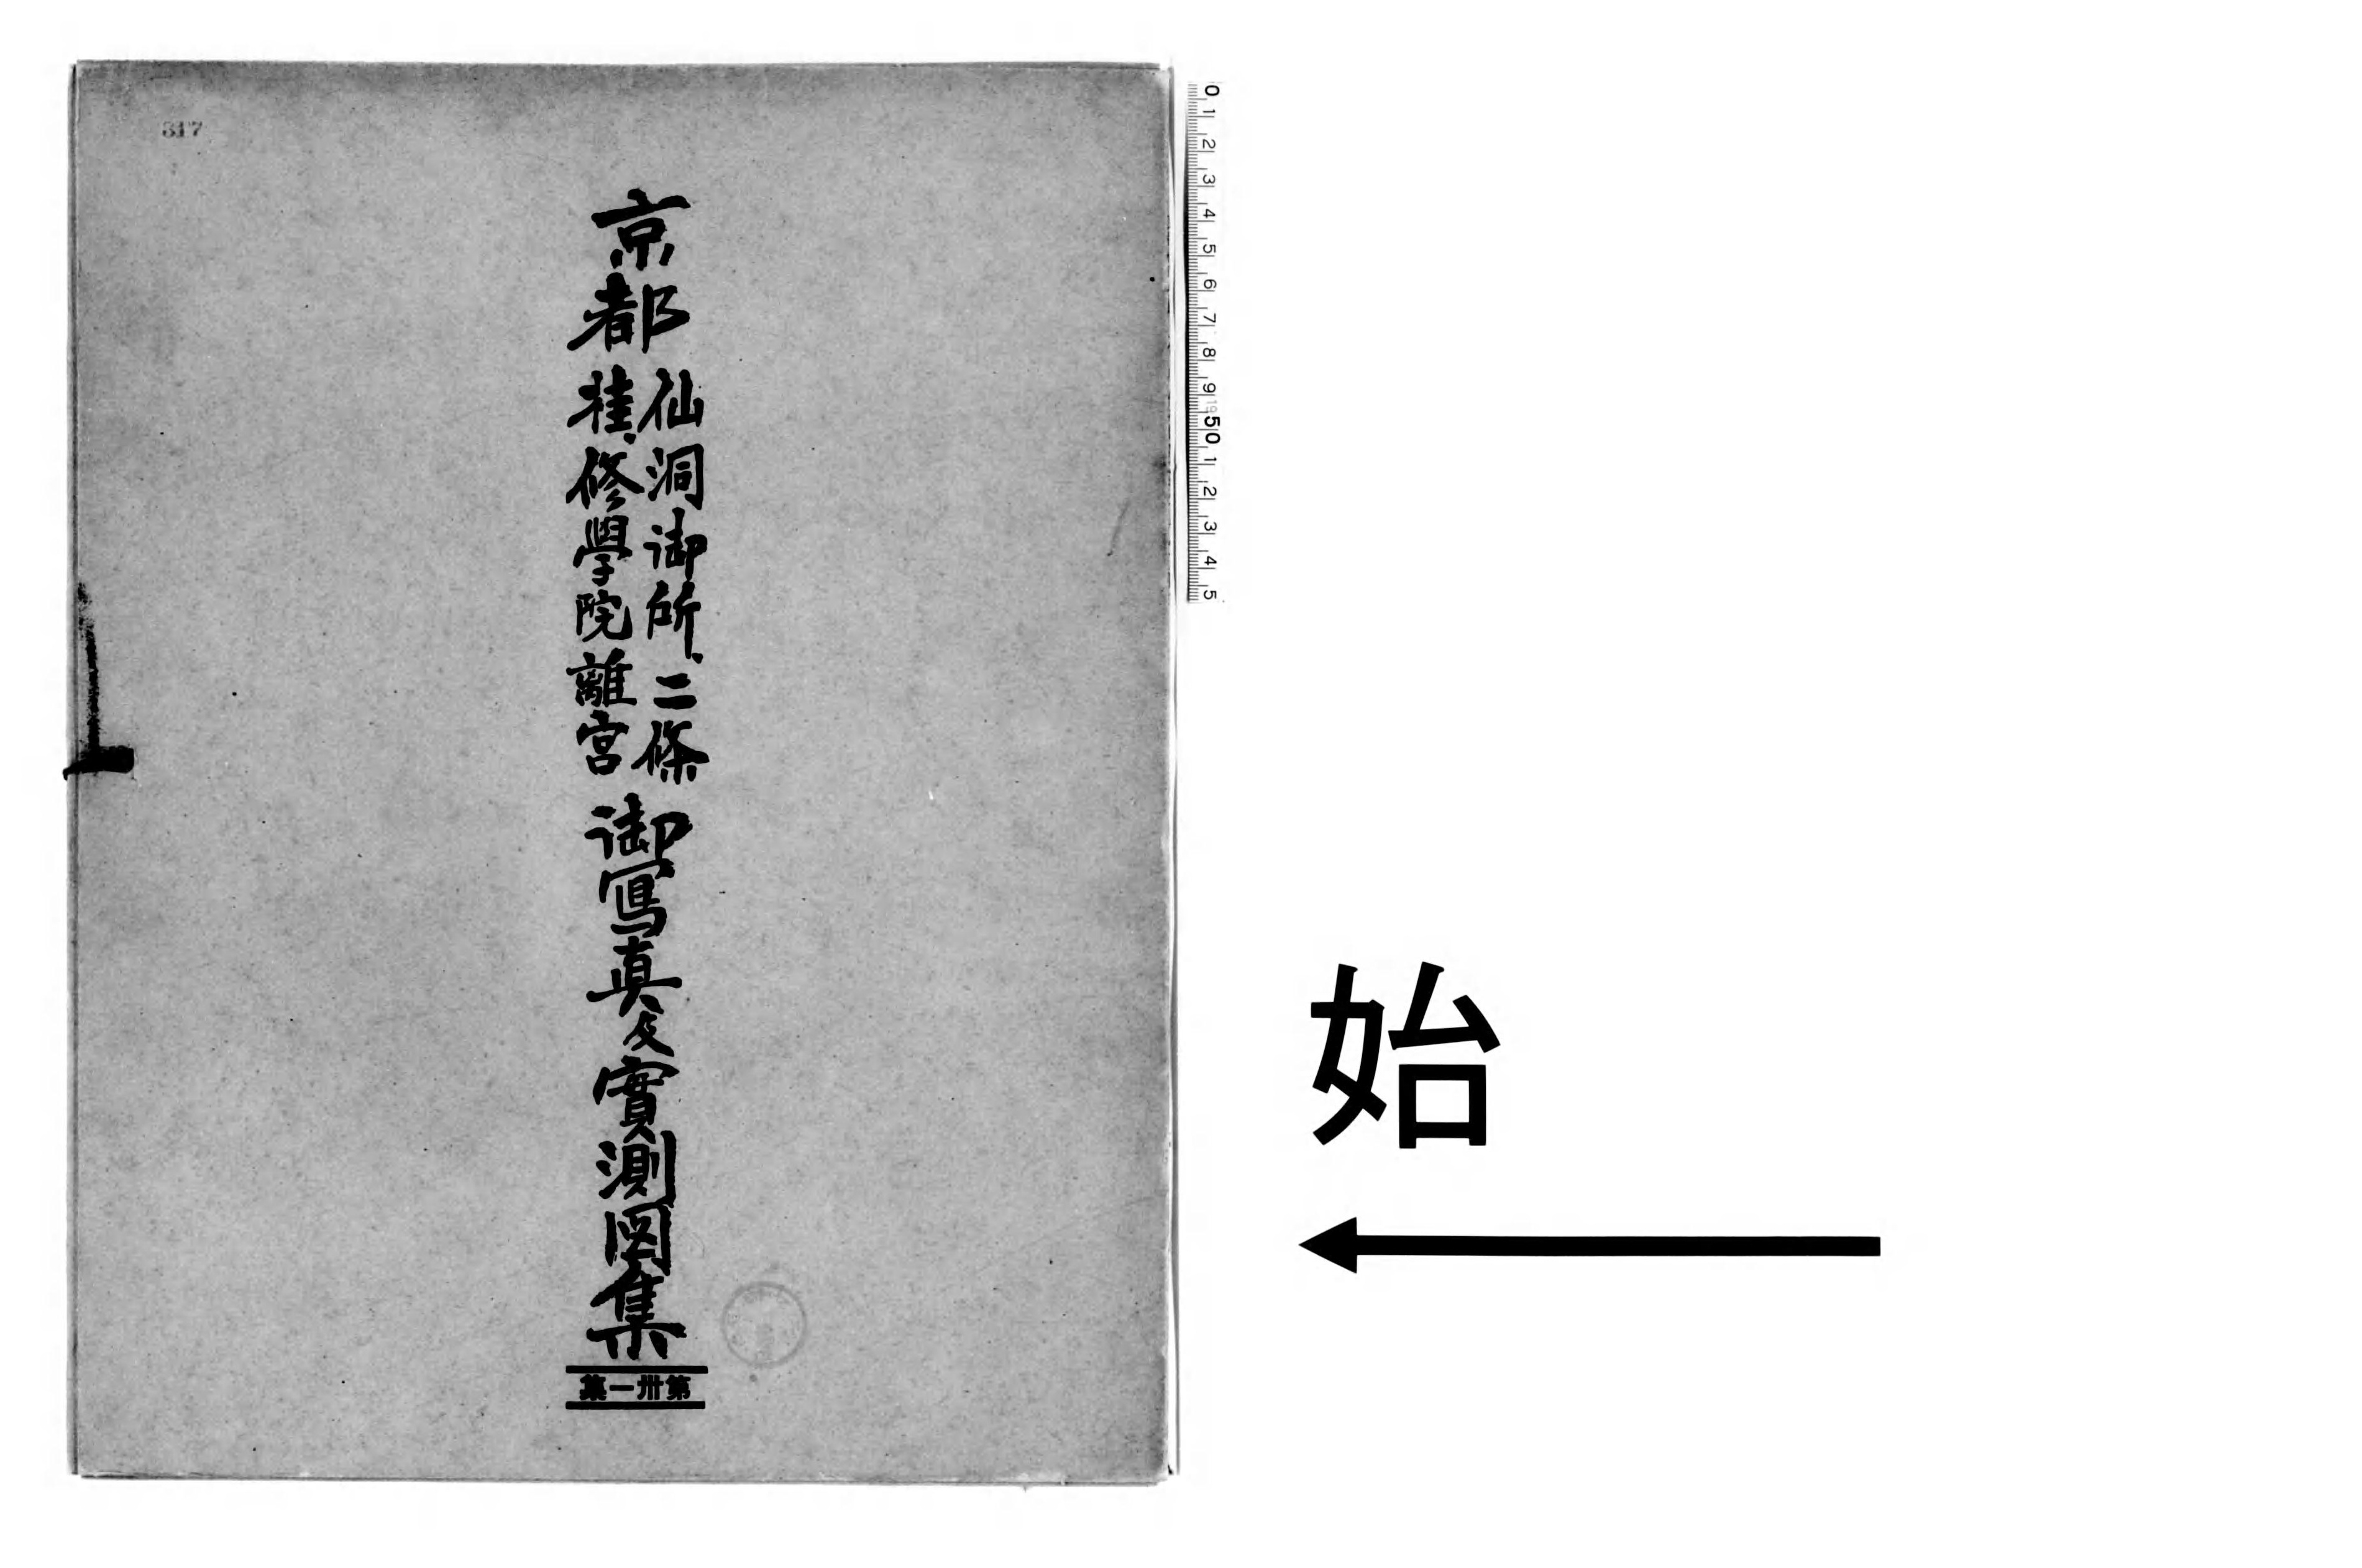 京都
仙洞御所、二條
桂、修學院離宮
御寫真及實測図集
第卅一集
317
0 1 2 3 4 5 6 7 8 9 1950 1 2 3 4 5
始